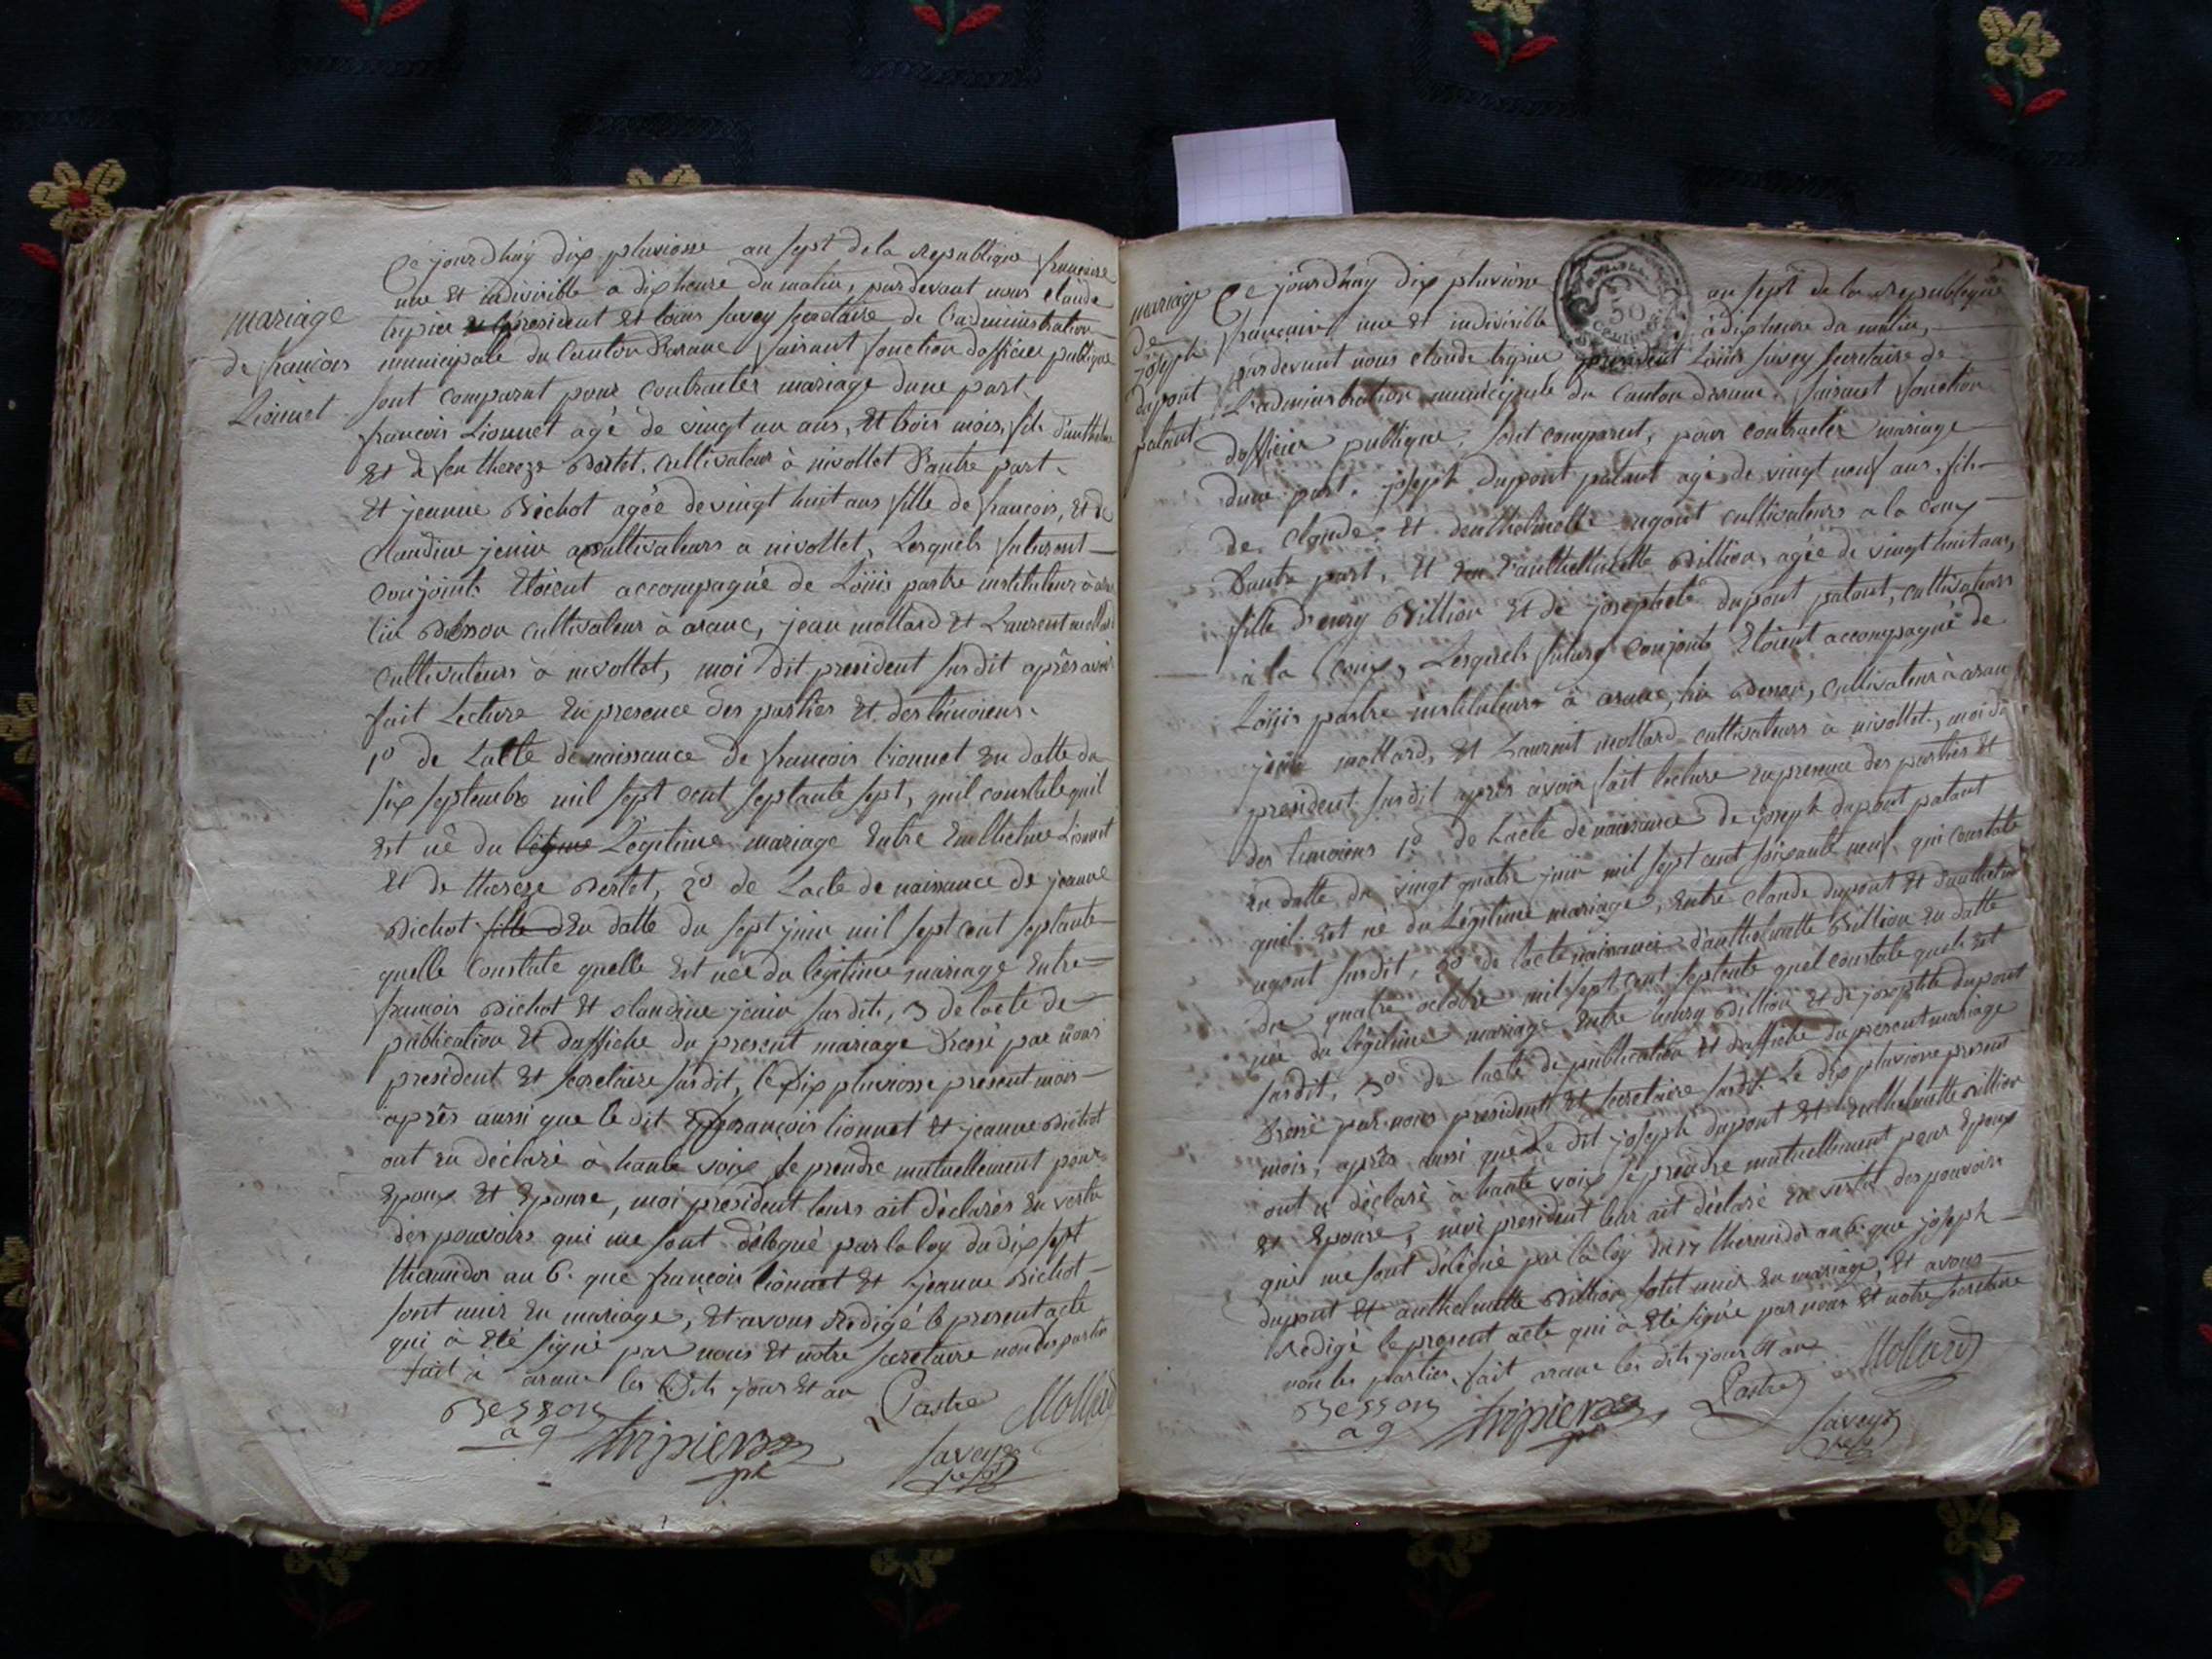 mariage
de françois
Lionnet
Ce jourdhuy dix pluviosse an sept de la republique française
une et indivisible a dix heure du matin, pardevant nous claude
tripier president et louis savey secretaire de l'administration
municipale du Canton d'arane faisant fonction dofficier publique
sont comparut pour contracter mariage dune part.
françois Lionnet agé de vingt un ans, et trois mois, fils d'anthelme
et de feu thereze Bertet, cultivateur à nivollet d'autre part.
et jeanne Bichot agée de vingt huit ans fille de françois, et de
claudine jenin cultivateurs a nivollet, Lesquels futurs
conjoints etoient accompagné de Loüis pastre instituteur à
Besson cultivateur à arane, jean mollard et Laurent mollard
cultivateurs à nivollet, moi dit president susdit après avoir
fait Lecture en presence des parties et des témoiens.
1º de Lacte de naissance de françois lionnet en datte du
six septembre mil sept cent septante sept, quil constate quil
est né du legitime mariage entre Enthelme Lionnet
et de thereze Bertet, 2º de Lacte de naissance de jeanne
Bichot fille d en datte du sept juin mil sept cent septante
quelle constate quelle est née du legitime mariage entre
françois Bichot et claudine jenin susdits, 3 de lacte de
publication et daffiche du present mariage dressé par nous
president et secretaire susdit, le dix pluviosse present mois
après aussi que le dit françois lionnet et jeanne Bichot
ont eu déclaré à haute voix se prendre mutuellement pour
epoux et epouse, moi president leurs ait déclarés en vertu
des pouvoirs qui me sont délegué par la loy du dix sept
thermidor an 6. que françois lionnet et jeanne Bichot
sont unis en mariage, et avons redigé le present acte
qui à eté signé par nous et notre secretaire non les parties
fait à arane les dits jour et an
Pastre
Mollard
Besson
a g
tripier
pt
savey
mariage
de
joseph
dupont
patant
Ce jourdhuy dix pluviosse an sept de la republique
50
centimes
française une et indivisible à dix heure du matin,
pardevant nous claude tripier president Loüis savey secretaire de
L'administration municipale du Canton darane. faisant fonction
dofficier publique, sont comparut, pour contracter mariage
dune part. joseph dupont patant agé de vingt neuf ans. fils
de claude et denthelmette ugont cultivateurs a la Coux
d'autre part, et d'anthelmette Billion, agée de vingt huit ans,
fille d'enry Billion et de josephete dupont patant, cultivateurs
à la Coux, Lesquels futurs conjoints etoient accompagné de
Loüis pastre instituteur à arane, Besson, cultivateur à arane
jean mollard, et Laurent mollard cultivateurs à nivollet, moi dit
president susdit après avoir fait lecture en presence des parties et
des temoiens 1º de Lacte de naissance de joseph dupont patant
en datte du vingt quatre juin mil sept cent soixante neuf qui constate
quil est né du Legitime mariage, entre claude dupont et d'anthelmette
ugont susdit, 2º de lacte naissance d'anthelmette Billion en datte
du quatre octobre mil sept cent septante quel constate quele est
née du légitime mariage entre enry Billion et de josephte dupont
susdit, 3º de lacte de publication et daffiche du present mariage
dressé par nous president et secretaire susdit. Le dix pluviosse present
mois, après aussi que Le dit joseph dupont et enthelmette Billion
ont u déclaré à haute voix se prendre mutuellement pour epoux
et epouse, moi president leur ait déclaré en vertu des pouvoirs
qui me sont délégué par la loy du 17 thermidor an 6. que joseph
dupont et anthelmette Billion sont unis en mariage, et avons
redigé le present acte qui à eté signée par nous et notre secretaire
non les parties, fait arane les dits jour et an
Mollard
Pastre
Besson
a g
tripier
pt
savey